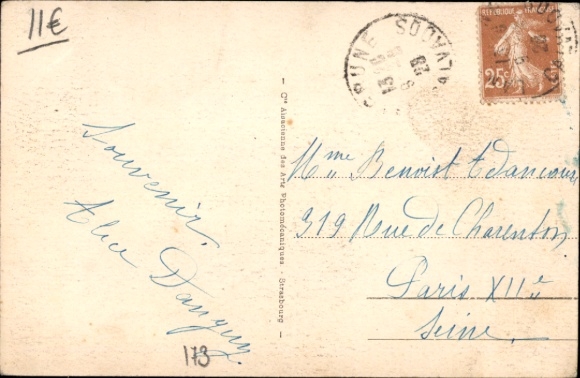 11€
RÉPUBLIQUE FRANÇAISE
25c
CALVADOS
Souvenir.
Alice Danguy.
173
Cie Alsacienne des Arts Photomécaniques - Strasbourg
Mme Benoist
319 Rue de Charenton
Paris XIIe
Seine.